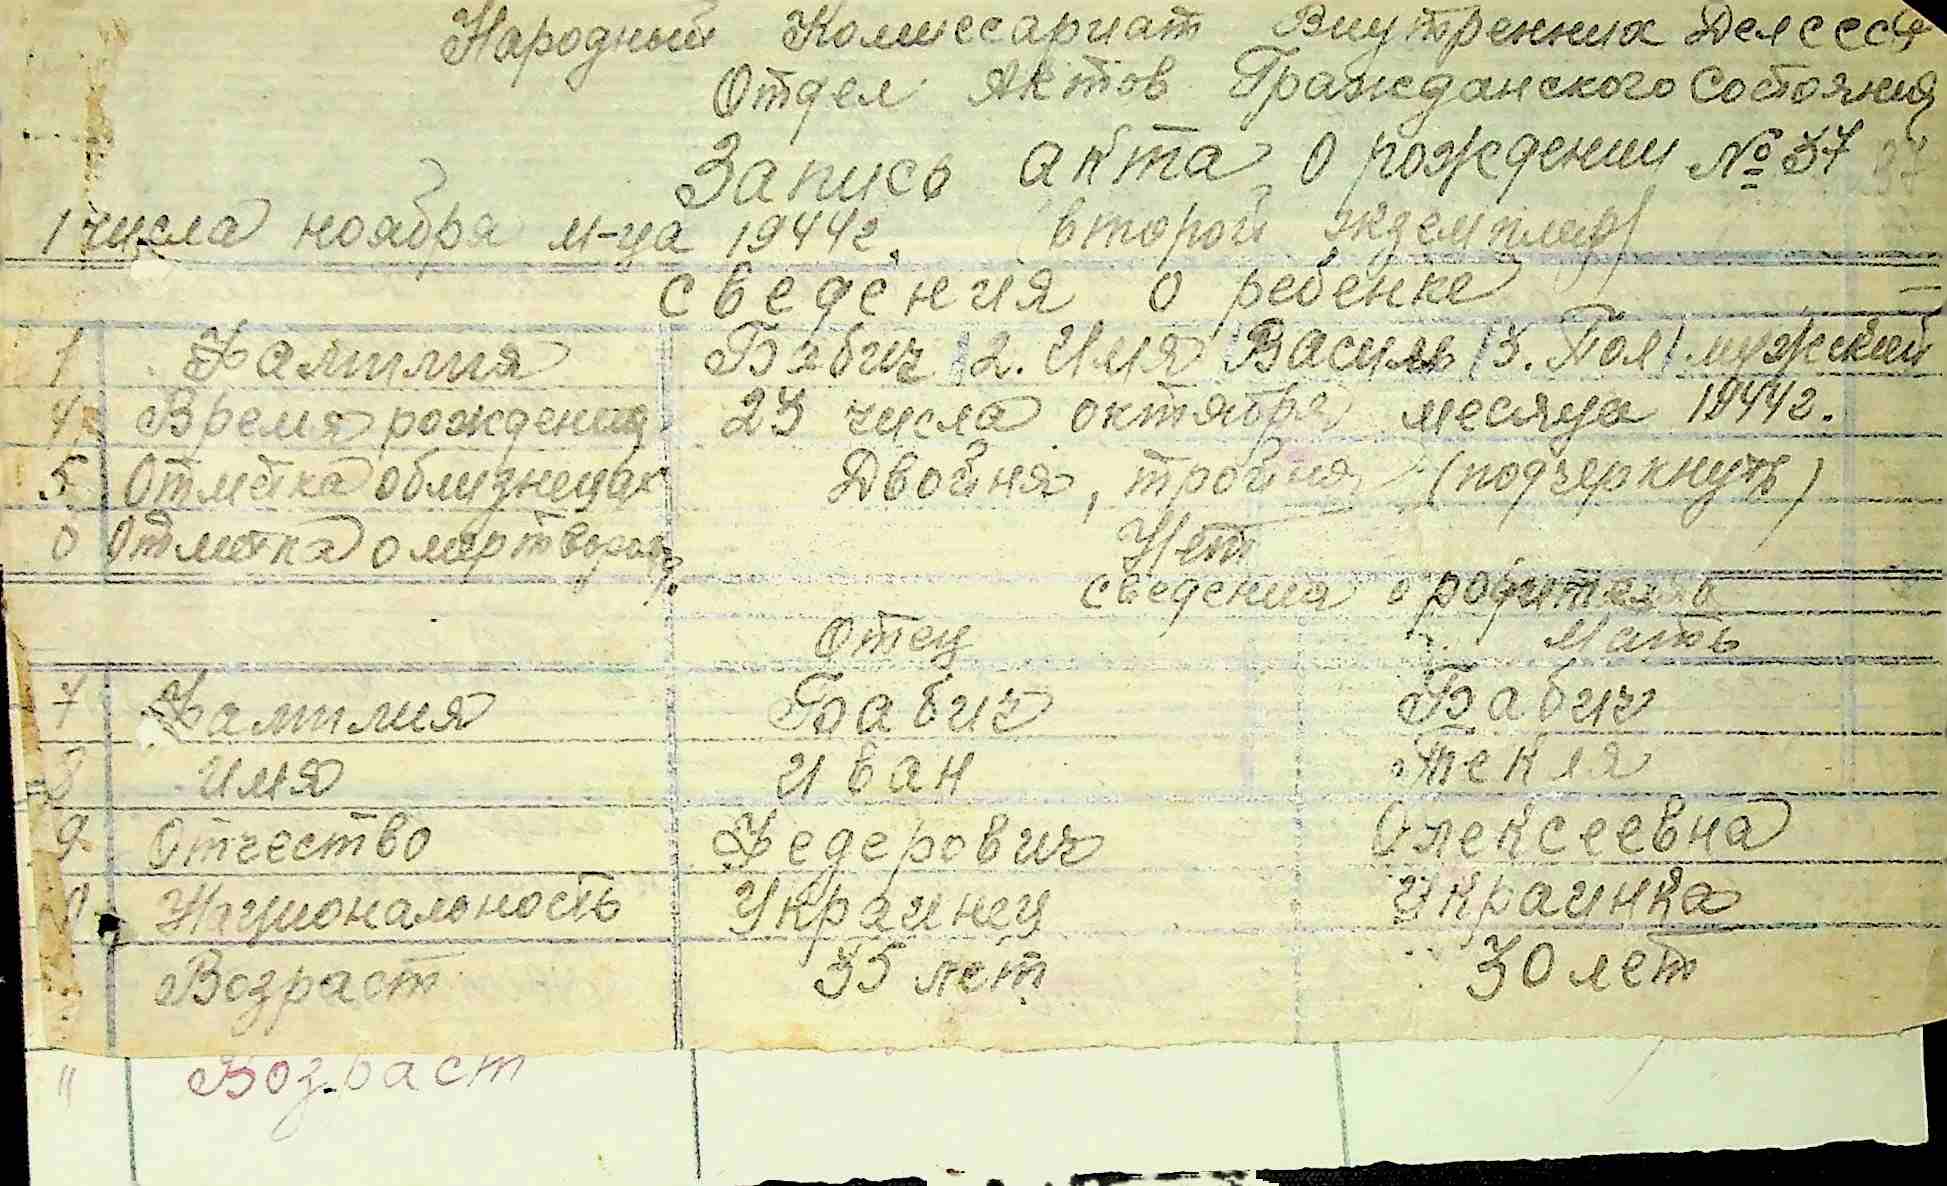 Народный Комиссариат Внутренних Дел СССР
Отдел Актов Гражданского Состояния
Запись акта о рождении № 37 37
1 числа ноября м-ца 1944г. второй экземпляр/
сведения о ребенке
1 Фамилия Бабич 2. Имя Василь 3. Пол мужский
4 Время рождения 23 числа октября месяца 1944г.
5 Отметка облизнецах Двойня, тройня (подчеркнуть)
Отметка о Нет
сведения о родителях
Отец Мать
7 Фамилия Бабич Бабич
8 Имя Иван Текля
9 Отчество Федерович Олексеевна
Национальность Украинец Украинка
Возраст 35 лет 30 лет
11 Возраст